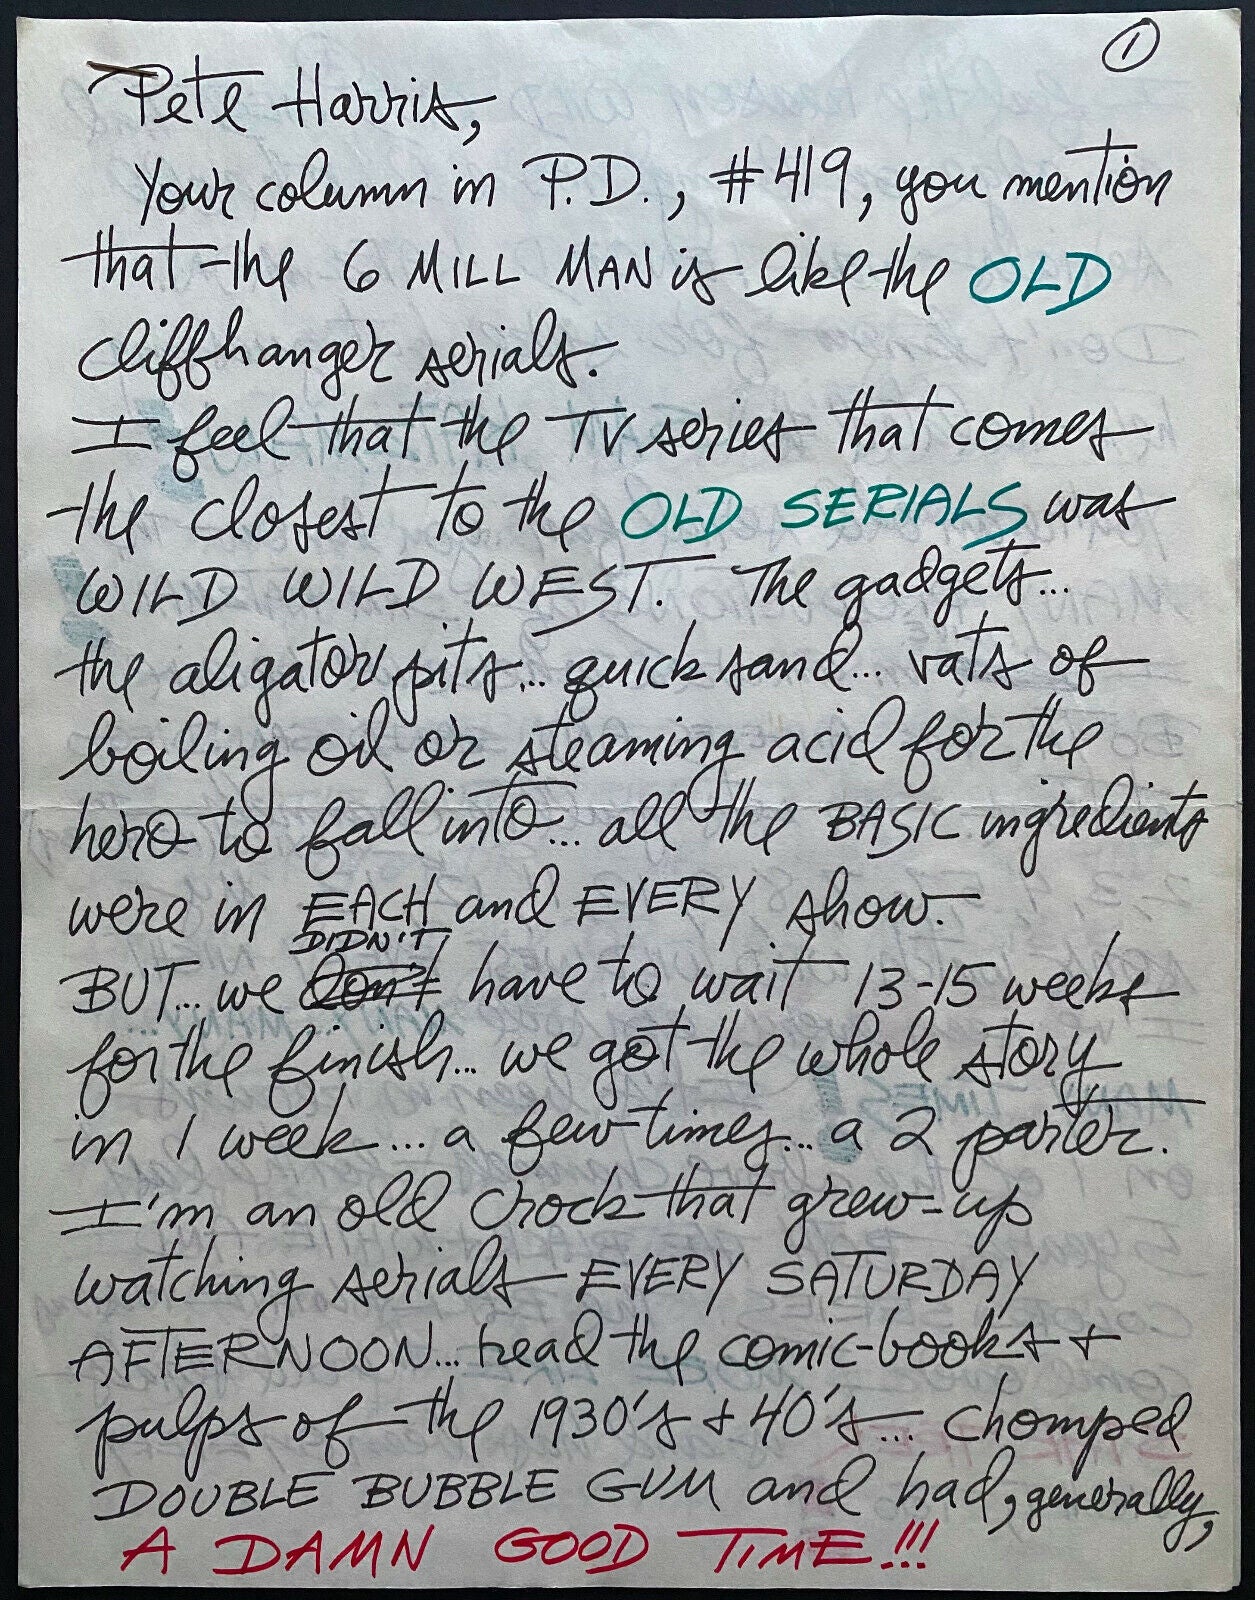 ①
Pete Harris,
Your column in P.D., #419, you mention
that the 6 MILL MAN is like the OLD
cliffhanger serials.
I feel that the TV series that comes
the closest to the OLD SERIALS was
WILD WILD WEST. The gadgets...
the aligator pits... quick sand... vats of
boiling oil or steaming acid for the
hero to fall into... all the BASIC ingredients
were in EACH and EVERY show.
DIDN'T
BUT... we don't have to wait 13-15 weeks
for the finish... we got the whole story
in 1 week... a few times... a 2 parter.
I'm an old crock that grew-up
watching serials EVERY SATURDAY
AFTERNOON... read the comic-books +
pulps of the 1930's + 40's... chomped
DOUBLE BUBBLE GUM and had, generally,
A DAMN GOOD TIME!!!